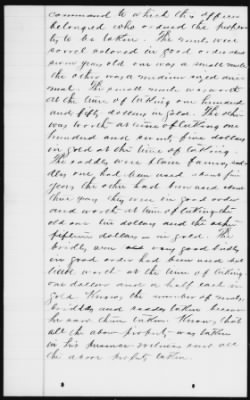 command to which the officer
belonged who ordered the proper-
ty to be taken. The mules were
sorrel colored in good order and
seven years old one was a small mule
the other was a medium sized ani-
mal. The small mule was worth
at the time of taking one hundred
and fifty dollars in gold. The other
was worth at time of taking one
hundred and seventy five dollars
in gold at the time of taking.
The saddles were plain farming sad-
dles one had been used about five
years the other had been used about
five years they were in good order
and worth at time of taking the
old one ten dollars and the
fifteen dollars in gold. The
bridles were very good bridles
in good order had been used but
little worth at the time of taking
one dollar and a half each in
gold. Knows the number of mules
bridles and saddles taken because
he saw them taken. Knows that
all the above property was taken
in his presence and all
the above property taken